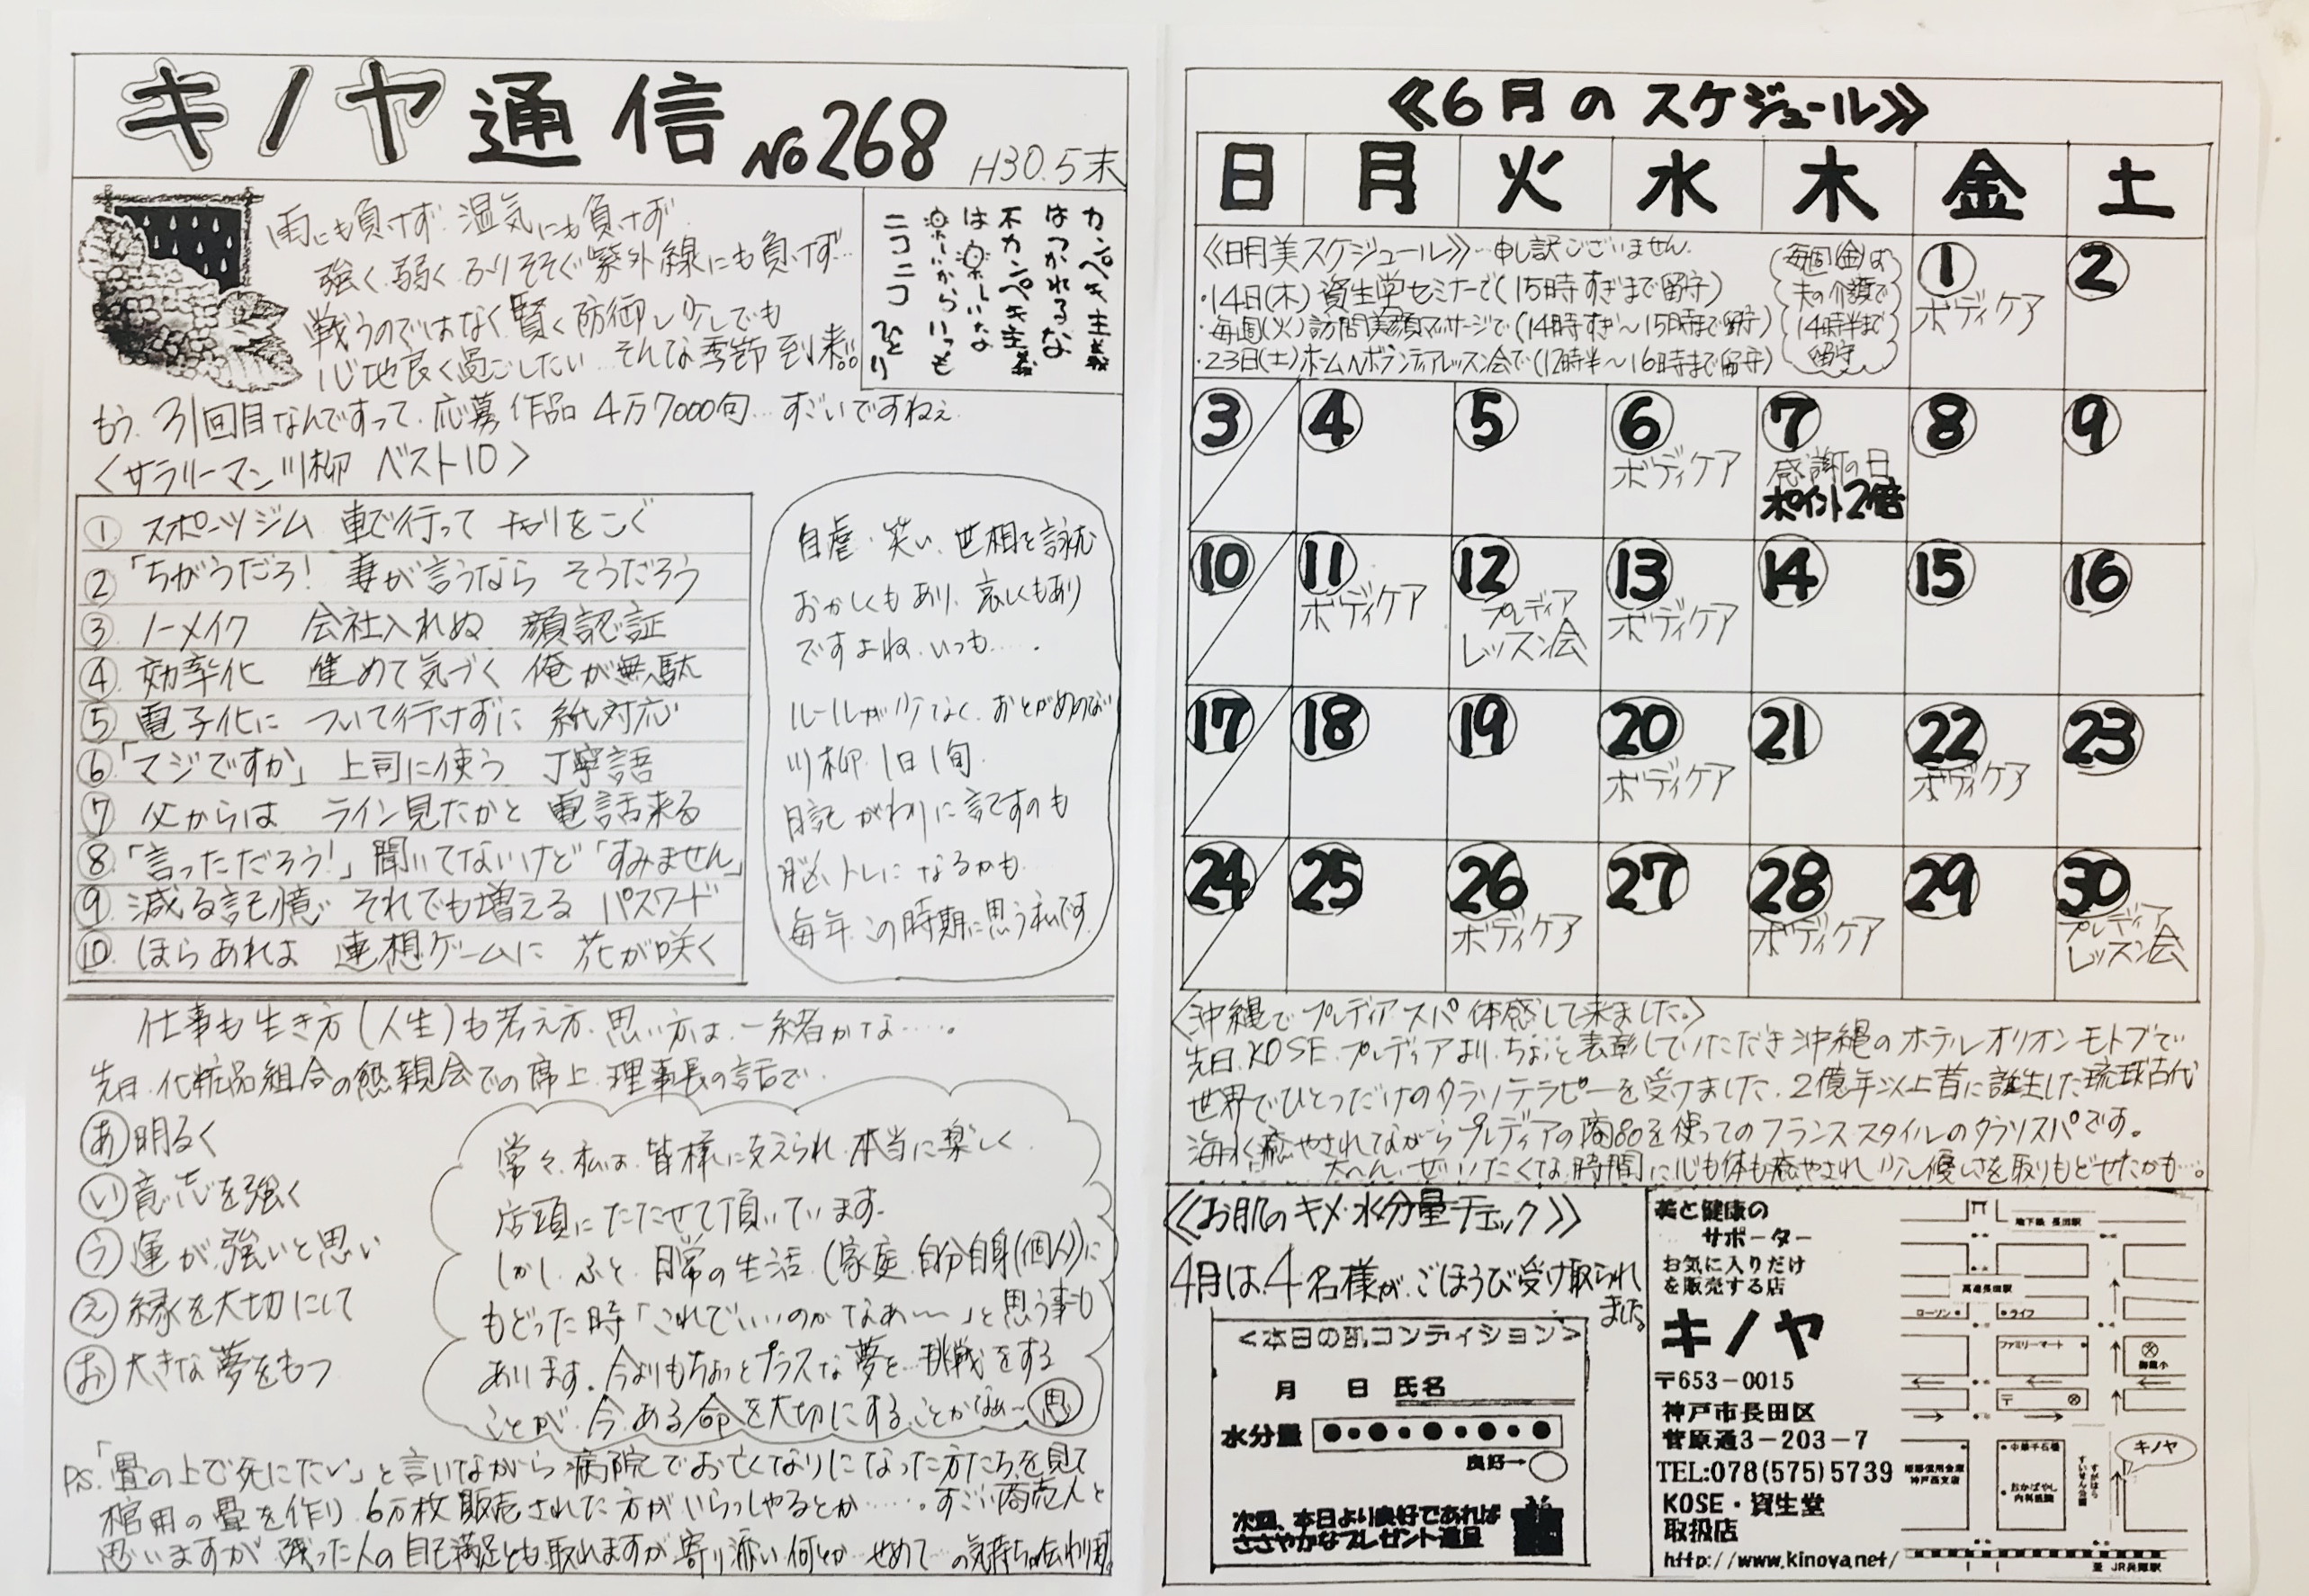 キノヤ通信 No268 H30.5末
雨にも負けず 湿気にも負けず
強く 弱く ふりそそぐ紫外線にも負けず…
戦うのではなく 賢く防御し 少しでも
心地良く過ごしたい… そんな季節到来。
カンペキ主義
はつかれるな
不カンペキ主義
は楽しいな
楽しいからいつも
ニコニコ ひとり
もう、31回目なんですって、応募作品 4万7000句…すごいですねぇ
<サラリーマン川柳 ベスト10>
① スポーツジム 車で行って チャリをこぐ
② 「ちがうだろ!」 妻が言うなら そうだろう
③ ノーメイク 会社入れぬ 顔認証
④ 効率化 進めて気づく 俺が無駄
⑤ 電子化に ついて行けずに 紙対応
⑥ 「マジですか」 上司に使う 丁寧語
⑦ 父からは ライン見たかと 電話来る
⑧ 「言っただろう!」 聞いてないけど 「すみません」
⑨ 減る記憶 それでも増える パスワード
⑩ ほらあれよ 連想ゲームに 花が咲く
自虐・笑い、世相を詠む
おかしくもあり、哀しくもあり
ですよね、いつも……。
ルールが少なく、おとがめのない
川柳、1日1句、
日記がわりに記すのも
脳トレになるかも、
毎年、この時期に思う私です。
仕事も生き方(人生)も考え方、思い方は、一緒かな……。
先日、化粧品組合の懇親会での席上、理事長の話で、
あ 明るく
い 意志を強く
う 運が強いと思い
え 縁を大切にして
お 大きな夢をもつ
常々、私は、皆様に支えられ、本当に楽しく、
店頭にたたせて頂いています。
しかし、ふと、日常の生活、(家庭、自分自身(個人)に
もどった時「これでいいのかなぁ〜」と思う事も
あります。今よりもちょっとプラスな夢を…挑戦をする
ことが、今、ある命を大切にすることかなぁ〜 思
P.S.「畳の上で死にたい」と言いながら病院でお亡くなりになった方たちを見て
棺用の畳を作り、6万枚販売された方がいらっしゃるとか……。すごい商売人と
思いますが、残った人の自己満足とも取れますが、寄り添い何とか…せめて…の気持ちは伝わります。
≪6月のスケジュール≫
日 月 火 水 木 金 土
≪明美スケジュール≫…申し訳ございません。
・14日(木) 資生学セミナーで(15時すぎまで留守)
・毎週(火) 訪問美顔マッサージで(14時すぎ〜15時まで留守)
・23日(土) ホームNボランティアレッスン会で(12時半〜16時まで留守)
毎週(金)は
夫の介護で
14時半まで
留守
① ②
ボディケア
③ ④ ⑤ ⑥ ⑦ ⑧ ⑨
ボディケア 感謝の日
ポイント2倍
⑩ ⑪ ⑫ ⑬ ⑭ ⑮ ⑯
ボディケア プレディア ボディケア
レッスン会
⑰ ⑱ ⑲ ⑳ ㉑ ㉒ ㉓
ボディケア ボディケア
㉔ ㉕ ㉖ ㉗ ㉘ ㉙ ㉚
ボディケア ボディケア プレディア
レッスン会
<沖縄でプレディアスパ体感して来ました。>
先日、KOSE、プレディアより、ちょっと表彰していただき沖縄のホテルオリオンモトブで
世界でひとつだけのタラソテラピーを受けました、2億年以上昔に誕生した琉球古代
海水に癒やされてながらプレディアの商品を使ってのフランススタイルのタラソスパです。
大へん、ぜいたくな時間に心も体も癒やされ少し優しさを取りもどせたかも…。
≪お肌のキメ・水分量チェック≫
4月は、4名様が、ごほうび受け取られ
ました。
<本日の肌コンディション>
月 日 氏名
水分量
良好→
次回、本日より良好であれば
ささやかなプレゼント進呈
美と健康の
サポーター
お気に入りだけ
を販売する店
キノヤ
〒653-0015
神戸市長田区
菅原通3-203-7
TEL:078(575)5739
KOSE・資生堂
取扱店
http://www.kinoya.net/
地下鉄 長田駅
高速長田駅
ローソン
ライフ
ファミリーマート
御蔵小
中華千石楼
キノヤ
神戸西支店
おかばやし
内科医院
すがはら
すいせん公園
至 JR兵庫駅